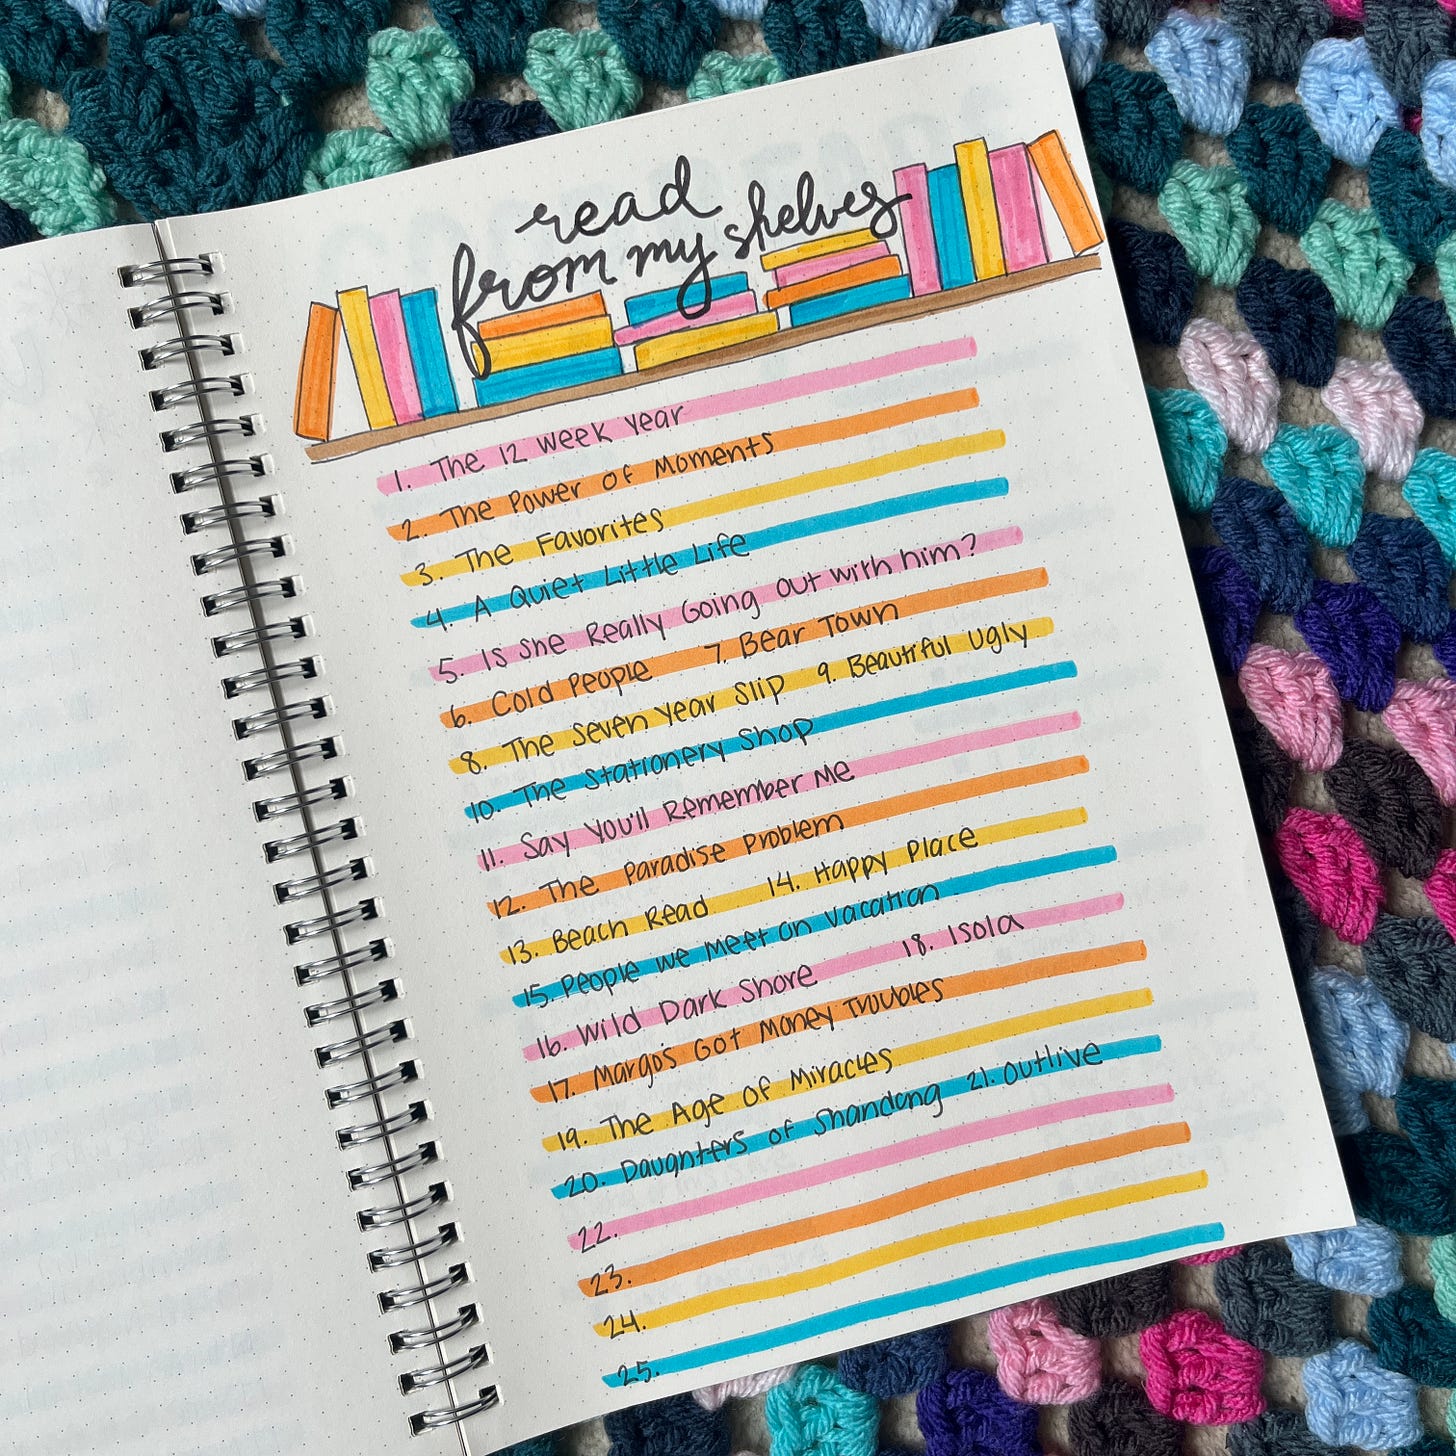 read
from my shelves
1. The 12 Week Year
2. The Power of Moments
3. The Favorites
4. A Quiet Little Life
5. Is She Really Going Out with him?
6. Cold People 7. Bear Town
8. The Seven Year Slip 9. Beautiful Ugly
10. The Stationery Shop
11. Say You'll Remember Me
12. The Paradise Problem
13. Beach Read 14. Happy Place
15. People we Meet on Vacation
16. Wild Dark Shore 18. Isola
17. Margo's Got Money Troubles
19. The Age of Miracles
20. Daughters of Shandong 21. Outlive
22.
23.
24.
25.